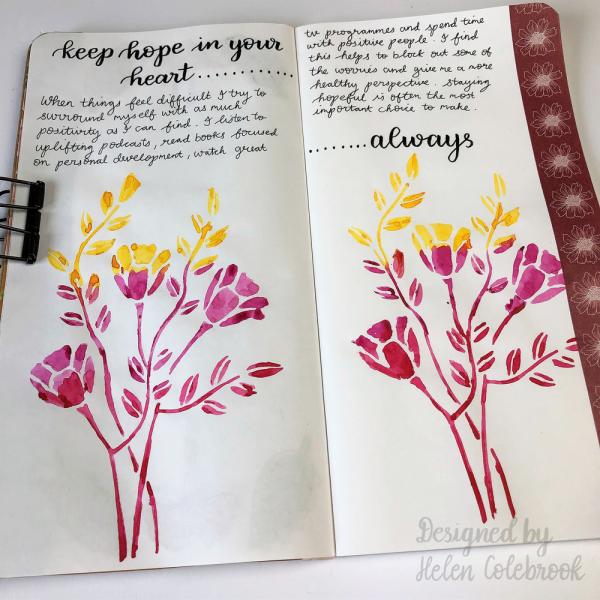 keep hope in your
heart..........
When things feel difficult I try to
surround myself with as much
positivity as I can find. I listen to
uplifting podcasts, read books focused
on personal development, watch great
tv programmes and spend time
with positive people. I find
this helps to block out some of
the worries and give me a more
healthy perspective. Staying
hopeful is often the most
important choice to make.
.......always
Designed by
Helen Colebrook